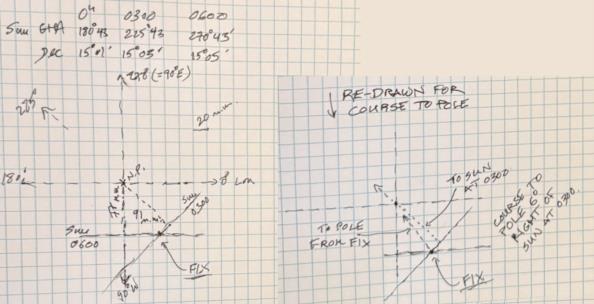 0h 0300 0600
Sun GHA 180°43 225°43' 270°43'
Dec 15°01' 15°03' 15°05'
(=90°E)
20 min
180°
N.P.
0° Lon
Sun
0300
91
Sun
0600
FIX
90°W
RE-DRAWN FOR
COURSE TO POLE
TO SUN
AT 0300
TO POLE
FROM FIX
COURSE TO
POLE 6° 
RIGHT OF
SUN AT 0300.
FIX